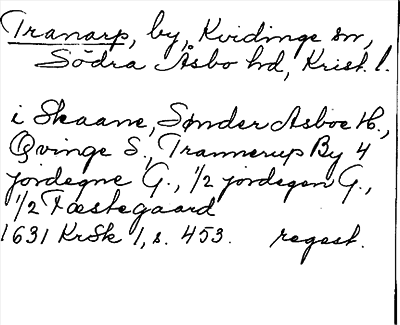 Tranarp, by, Kvidinge sn,
Södra Åsbo hd, Krist. l.
i Skaane, Sønder Asboe H.,
Qvinge S., Trannerup By 4
jordegne G., 1/2 jordegen G.,
1/2 Fæstegaard
1631 KrSk 1, s. 453. regest.